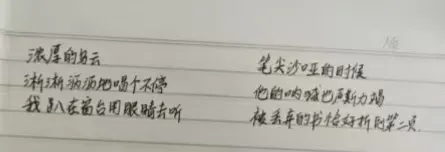 浓厚的乌云
淅淅沥沥地唱个不停
我趴在窗台用眼睛去听
笔尖沙哑的时候
他的呐喊也声嘶力竭
被丢弃的书恰好折到第二页